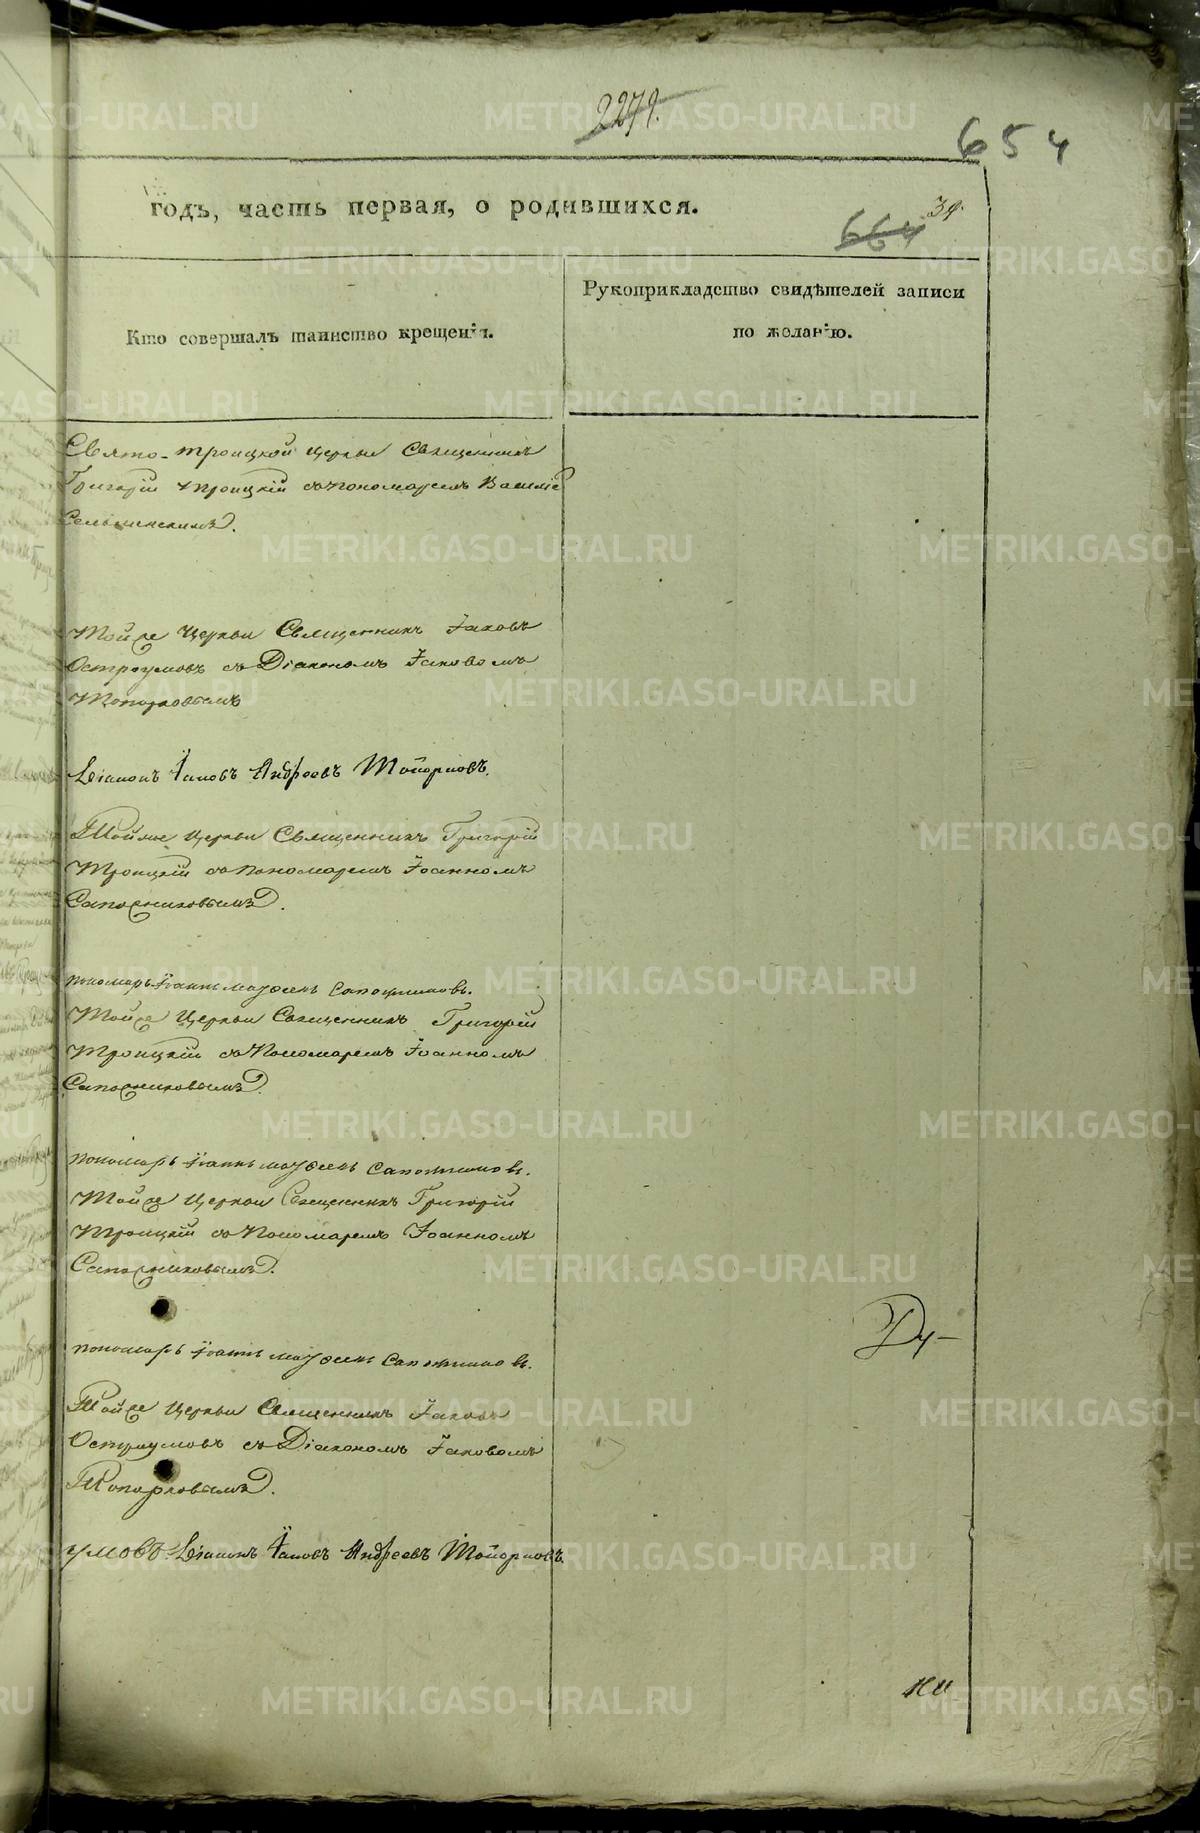 2279.
654
годъ, часть первая, о родившихся.
34.
664
Кто совершалъ таинство крещенія.
Рукоприкладство свидѣтелей записи
по желанію.
Свято-троицкой Церкви Священникъ
Григорій Троицкій съ пономаремъ Василіе
Тойже Церкви Священникъ Іаковъ
Остроумовъ съ Діакономъ Іаковомъ
Топорковымъ
Діаконъ Іаковъ Андреевъ Топорковъ.
Тойже Церкви Священникъ Григорій
Троицкій съ пономаремъ Іоанномъ
Сапожниковымъ.
пономарь Іоаннъ Сапожниковъ.
Тойже Церкви Священникъ Григорій
Троицкій съ Пономаремъ Іоанномъ
Сапожниковымъ.
пономарь Іоаннъ Сапожниковъ.
Тойже Церкви Священникъ Григорій
Троицкій съ Пономаремъ Іоанномъ
Сапожниковымъ.
пономарь Іоаннъ Сапожниковъ.
Тойже Церкви Священникъ Іаковъ
Остроумовъ съ Діакономъ Іаковомъ
Топорковымъ.
умовъ Діаконъ Іаковъ Андреевъ Топорковъ.
METRIKI.GASO-URAL.RU